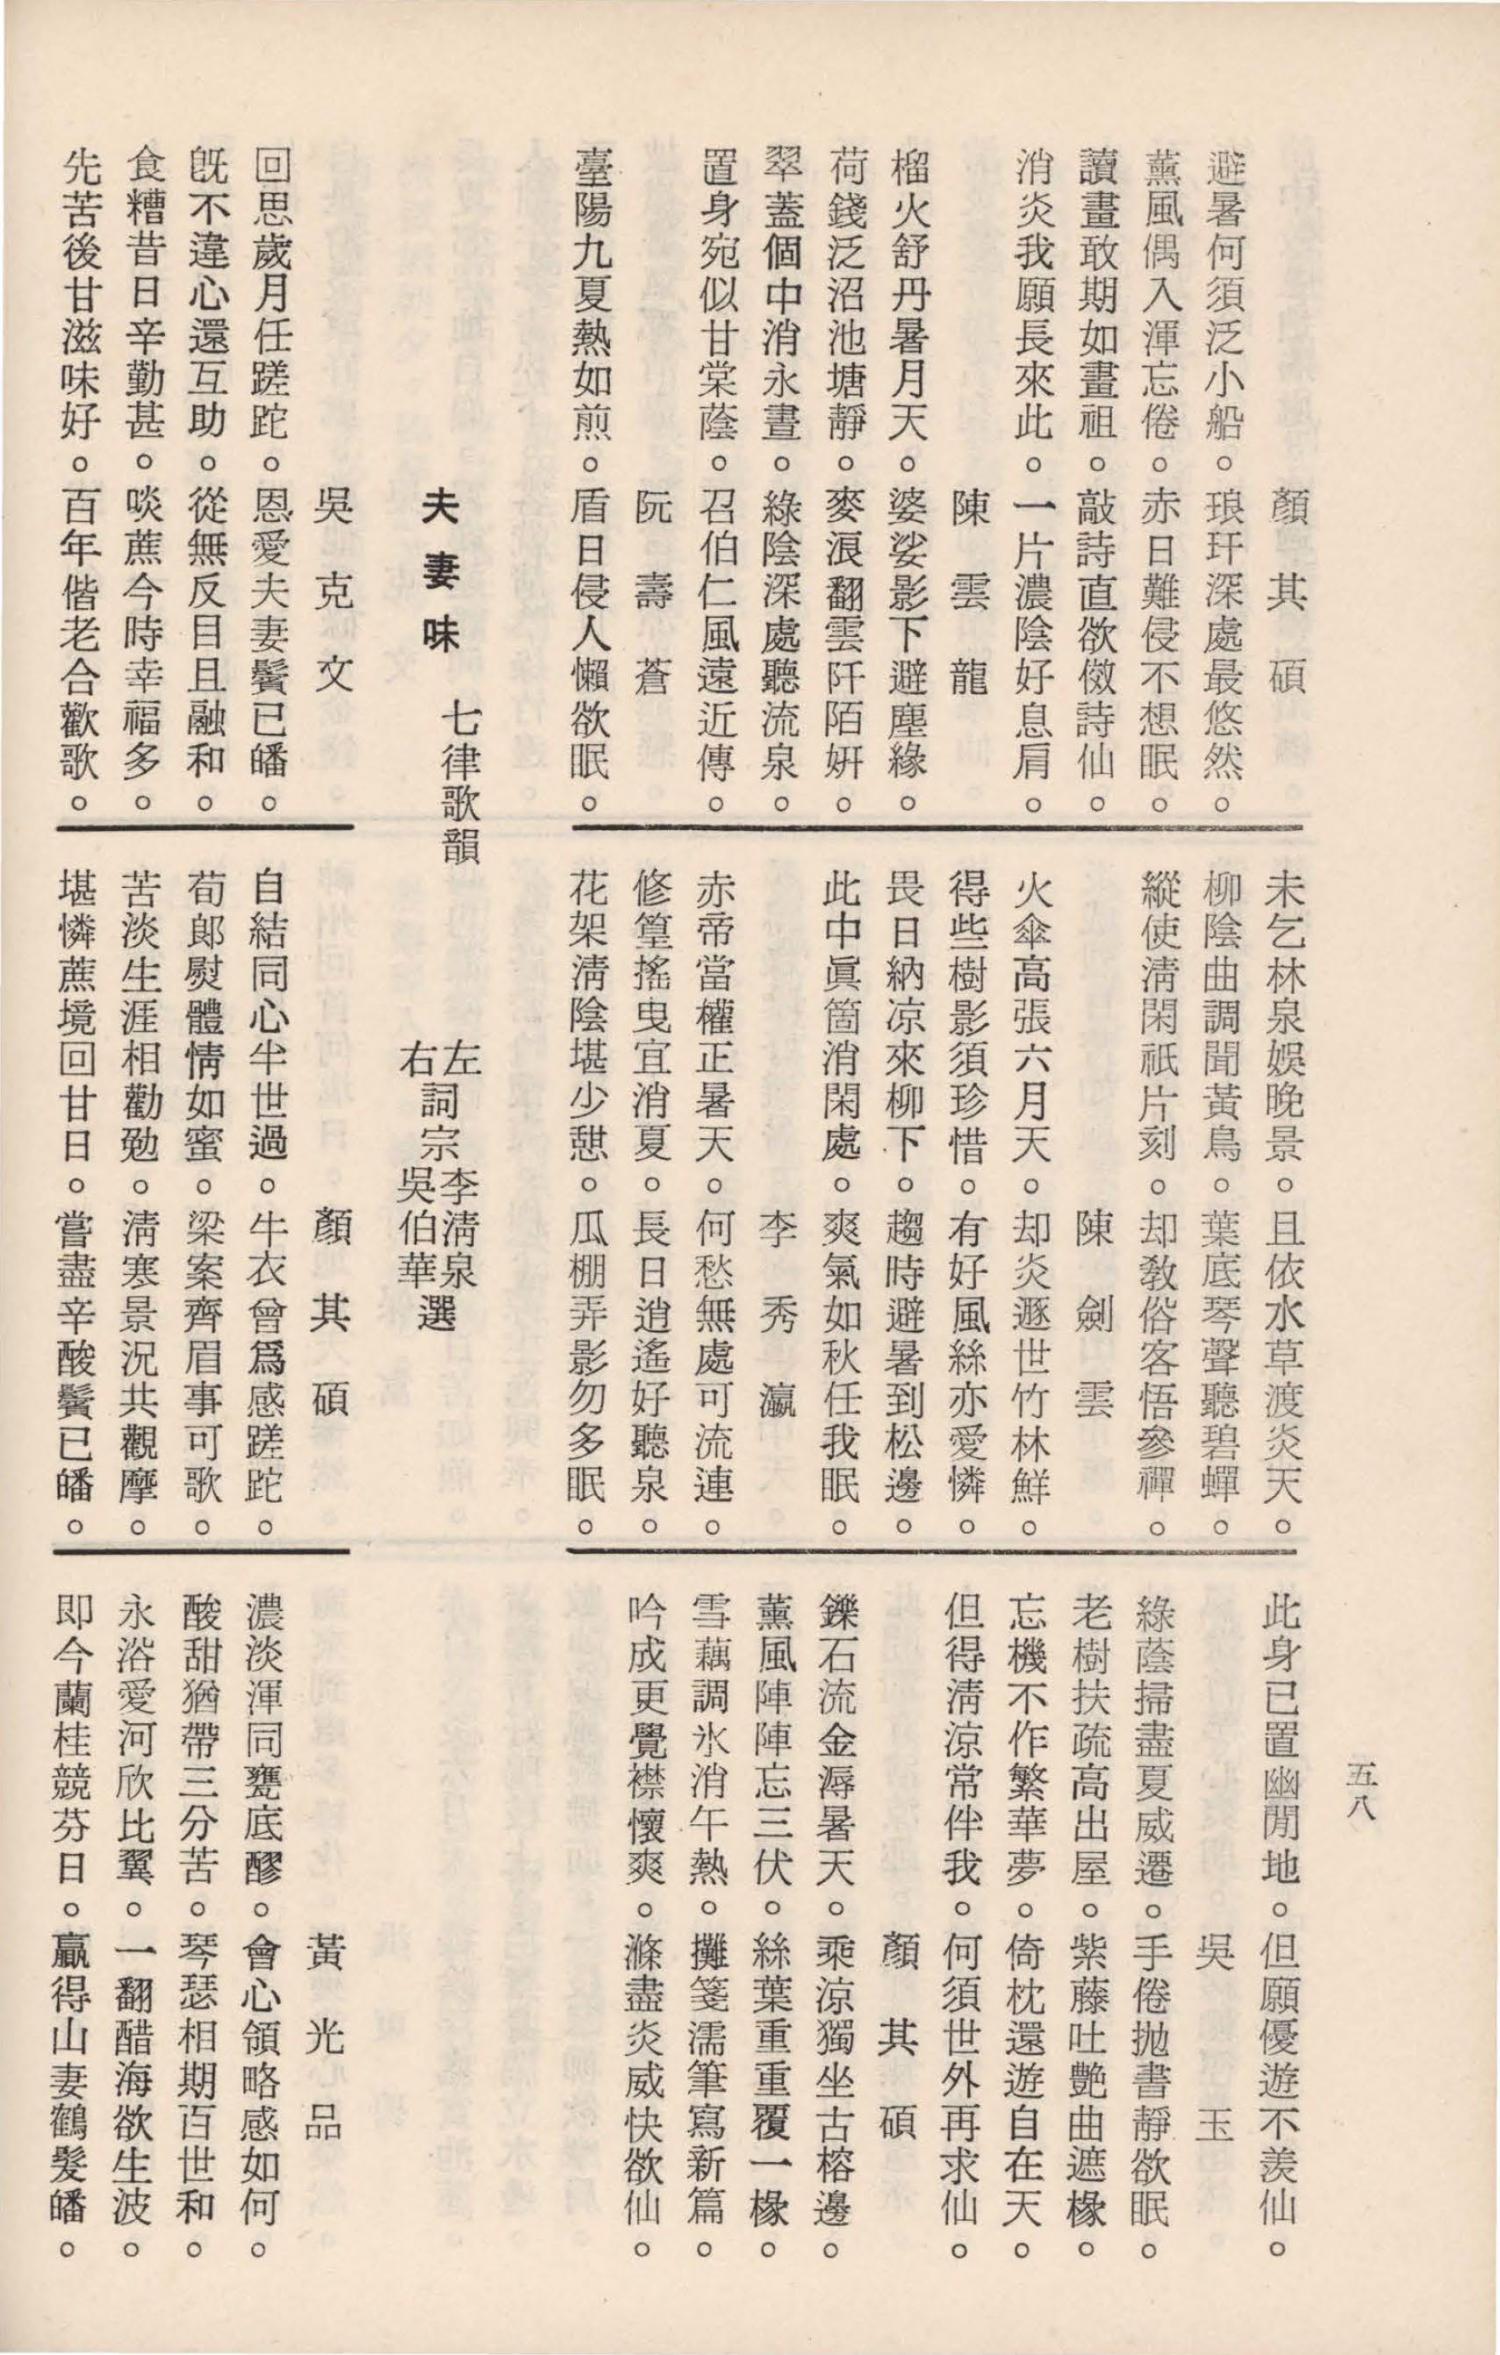 五八
顏其碩
避暑何須泛小船。琅玕深處最悠然。
薰風偶入渾忘倦。赤日難侵不想眠。
讀畫敢期如畫祖。敲詩直欲儆詩仙。
消炎我願長來此。一片濃陰好息肩。
陳雲龍
榴火舒丹暑月天。婆娑影下避塵緣。
荷錢泛沼池塘靜。麥浪翻雲阡陌妍。
翠蓋個中消永晝。綠陰深處聽流泉。
置身宛似甘棠蔭。召伯仁風遠近傳。
阮壽蒼
臺陽九夏熱如煎。盾日侵人懶欲眠。
未乞林泉娛晚景。且依水草渡炎天。
柳陰曲調聞黃鳥。葉底琴聲聽碧蟬。
縱使淸閑祇片刻。却敎俗客悟參禪。
陳劍雲
火傘高張六月天。却炎遯世竹林鮮。
得些樹影須珍惜。有好風絲亦愛憐。
畏日納凉來柳下。趨時避暑到松邊。
此中眞箇消閑處。爽氣如秋任我眠。
李秀瀛
赤帝當權正暑天。何愁無處可流連。
修篁搖曳宜消夏。長日逍遙好聽泉。
花架淸陰堪少憇。瓜棚弄影勿多眠。
此身已置幽閒地。但願優遊不羨仙。
吳玉
綠蔭掃盡夏威遷。手倦拋書靜欲眠。
老樹扶疏高出屋。紫藤吐艷曲遮椽。
忘機不作繁華夢。倚枕還遊自在天。
但得淸涼常伴我。何須世外再求仙。
顏其碩
鑠石流金溽暑天。乘涼獨坐古榕邊。
薰風陣陣忘三伏。絲葉重重覆一椽。
雪藕調氷消午熱。攤箋濡筆寫新篇。
吟成更覺襟懷爽。滌盡炎威快欲仙。
夫妻味 七律歌韻
左詞宗李淸泉
右詞宗吳伯華選
吳克文
回思歲月任蹉跎。恩愛夫妻鬢已皤。
旣不違心還互助。從無反目且融和。
食糟昔日辛勤甚。啖蔗今時幸福多。
先苦後甘滋味好。百年偕老合歡歌。
顏其碩
自結同心半世過。牛衣曾爲感蹉跎。
荀郞熨體情如蜜。梁案齊眉事可歌。
苦淡生涯相勸勉。淸寒景況共觀摩。
堪憐蔗境回甘日。嘗盡辛酸鬢已皤。
黃光品
濃淡渾同甕底醪。會心領略感如何。
酸甜猶帶三分苦。琴瑟相期百世和。
永浴愛河欣比翼。一翻醋海欲生波。
即今蘭桂競芬日。贏得山妻鶴髮皤。